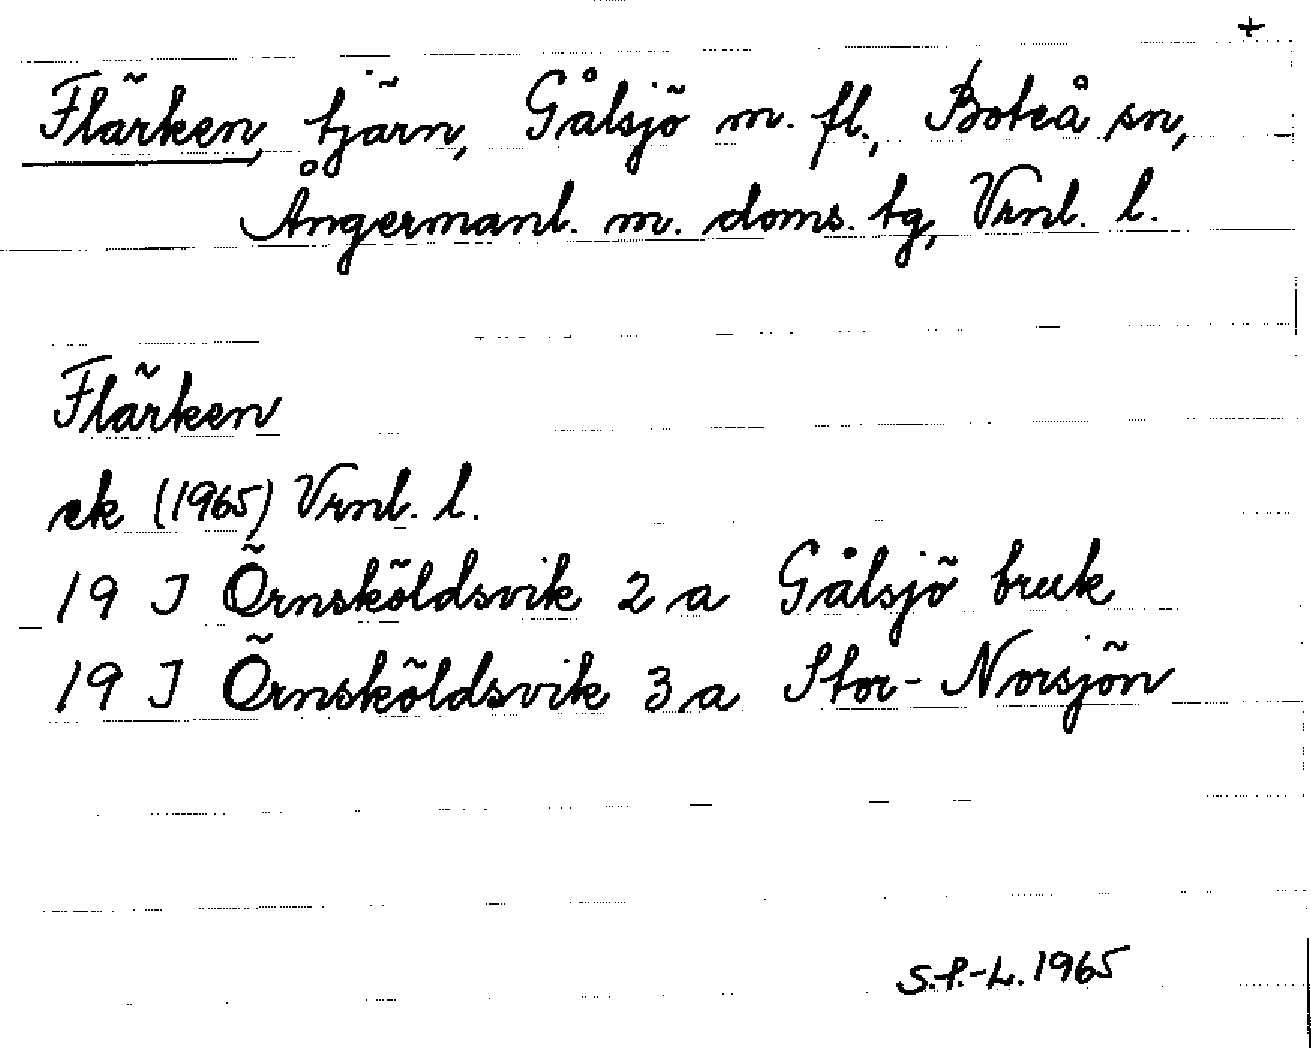 +
Flärken, tjärn, Gålsjö m. fl., Boteå sn,
Ångermanl. m. doms. tg, Vrnl. l.
Flärken
ek (1965) Vrnl. l.
19 J Örnsköldsvik 2 a Gålsjö bruk
19 J Örnsköldsvik 3 a Stor-Norsjön
S.P.-L. 1965